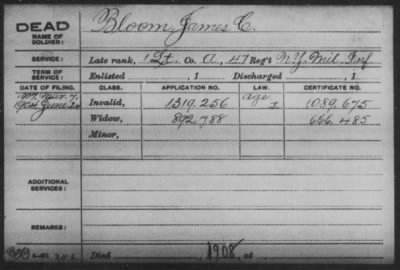 DEAD
NAME OF SOLDIER:
Bloom, James C.
SERVICE:
Late rank, 1 Lt. Co. A, 47 Reg't N.Y. Mil. Inf.
TERM OF SERVICE:
Enlisted , 1 Discharged , 1
DATE OF FILING. CLASS. APPLICATION NO. LAW. CERTIFICATE NO.
1907 Mar. 7, Invalid, 1319,256 age 1089,675
June 24 Widow, 892,788 666,485
Minor,
ADDITIONAL SERVICES:
REMARKS:
Died 1908, at